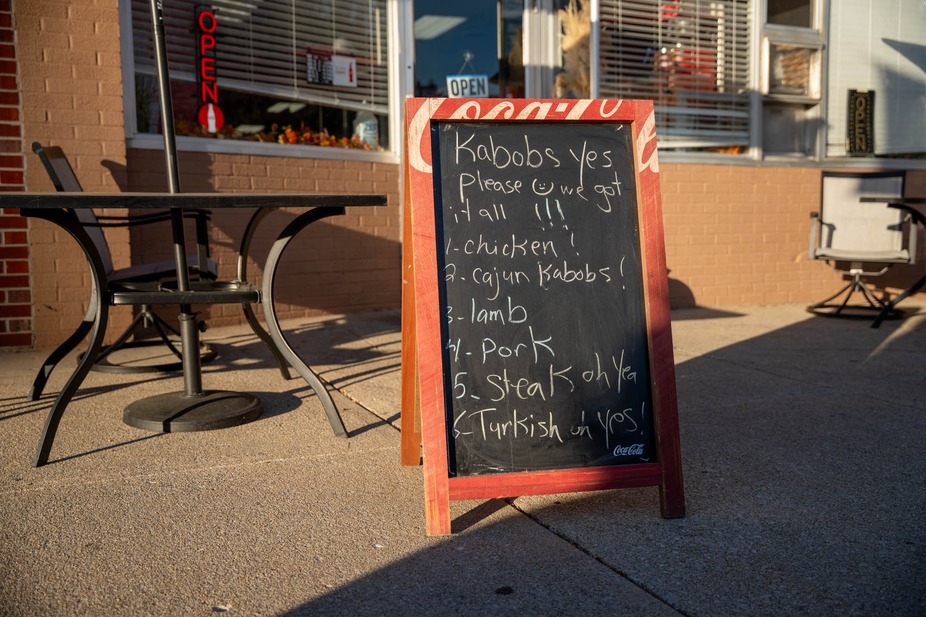 OPEN
OPEN
OPEN
Coca-Co
Kabobs yes
Please we got
it all !!!
1-chicken!
2-cajun kabobs!
3-lamb
4-Pork
5-Steak oh yea
6-Turkish oh yes!
Coca-Cola